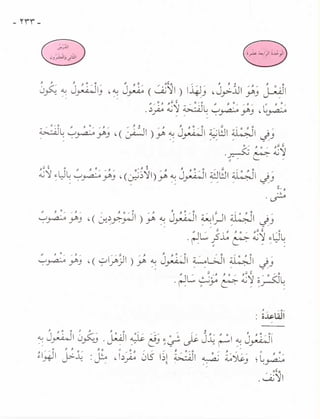 - ٢٣٣ -
الوحدة الرابعة عشرة
الدرس
الثاني والعشرون
الفعل وهو الدخول، ولهذا ( الأنف ) مفعول به، والمفعول به يكون
منصوبا، وهو منصوب بالفتحة لأنه مفرد.
وفي الجملة الثانية المفعول به هو ( السفن )، وهو منصوب بالفتحة
لأنه جمع تكسير.
وفي الجملة الثالثة المفعول به هو ( الأذنين )، وهو منصوب بالياء لأنه
مثنى.
وفي الجملة الرابعة المفعول به هو ( الموجودين )، وهو منصوب
بالياء لأنه جمع مذكر سالم.
وفي الجملة الخامسة المفعول به هو ( الزهرات )، وهو منصوب
بالكسرة لأنه جمع مؤنث سالم.
القاعدة :
المفعول به اسم يدل على شيء وقع عليه الفعل. ويكون المفعول به
منصوبا؛ وعلامة نصبه الفتحة إذا كان مفردا، مثل: يدخل الهواء
الأنف.